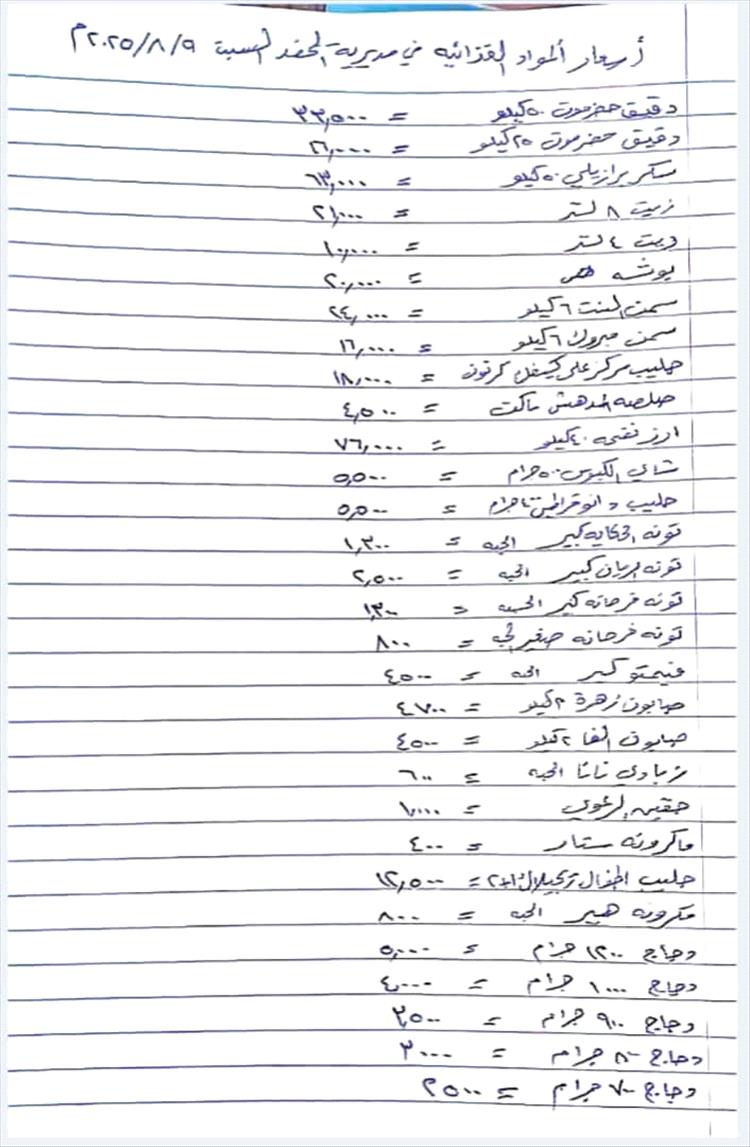 أسعار المواد الغذائيه في مديرية المحفد السبت ٢٠٢٥/٨/٩م
دقيق حضرموت ٥٠ كيلو = ٣٣,٥٠٠
دقيق حضرموت ٢٥ كيلو = ١٦,٠٠٠
سكر برازيلي ٥٠ كيلو = ٦٣,٠٠٠
زيت ٨ لتر = ٢١,٠٠٠
زيت ٤ لتر = ١٠,٠٠٠
= ٢٠,٠٠٠
سمن البنت ٦ كيلو = ٢٤,٠٠٠
سمن مبروك ٦ كيلو = ١٦,٠٠٠
حليب مركز على كيفك كرتون = ١٨,٠٠٠
صلصه المدهش باكت = ٤,٥٠٠
ارز ٤٠ كيلو = ٧٦,٠٠٠
شاي الكبوس ٥٠٠ جرام = ٥,٥٠٠
حليب دانو جرام = ٥,٥٠٠
تونه الحكايه كبير الحبه = ١,٣٠٠
تونه الريان كبير الحبه = ٢,٥٠٠
تونه فرحانه كبير الحبه = ١,٣٠٠
تونه فرحانه صغير = ٨٠٠
فيمتو كبير الحبه = ٤٥٠٠
صابون زهرة ٢ كيلو = ٤٧٠٠
صابون الفا ٢ كيلو = ٤٥٠٠
زبادي نانا الحبه = ٦٠٠
حقين = ١,٠٠٠
ماكرونه ستار = ٤٠٠
حليب اطفال ١+٢ = ١٢,٥٠٠
مكرونه هيبر الحبه = ٨٠٠
دجاج ١٢٠٠ جرام = ٥,٠٠٠
دجاج ١٠٠٠ جرام = ٤,٠٠٠
دجاج ٩٠٠ جرام = ٣,٥٠٠
دجاج ٨٠٠ جرام = ٣٠٠٠
دجاج ٧٠٠ جرام = ٢٥٠٠